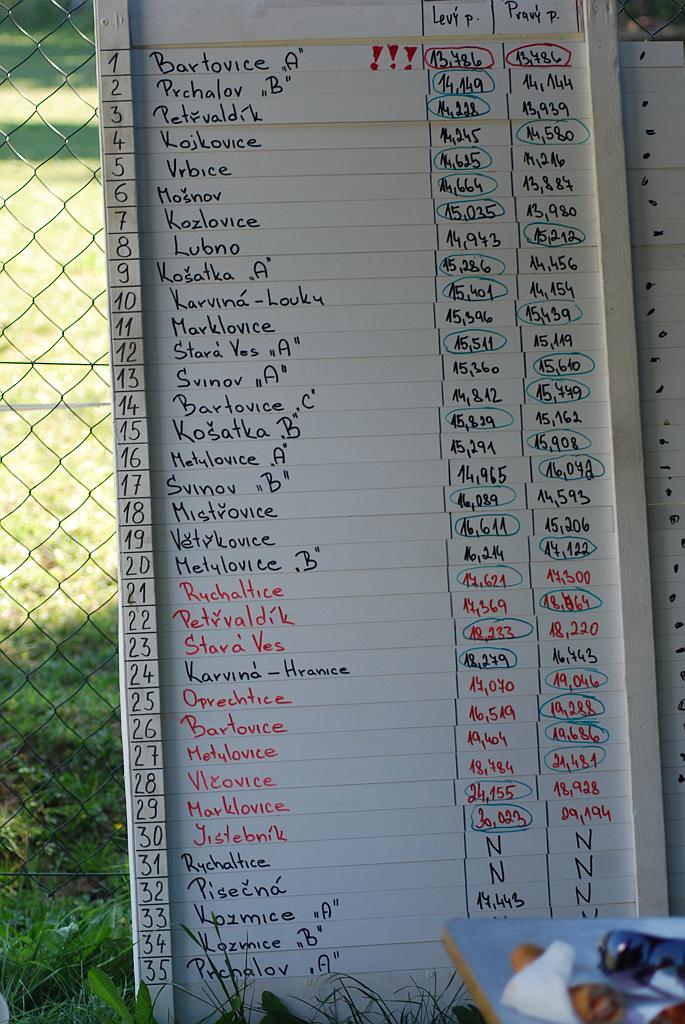 Levý p. Pravý p.
1 Bartovice „A" !!! 13,786 13,786
2 Prchalov „B" 14,149 14,144
3 Petřvaldík 14,228 13,939
4 Kojkovice 14,245 14,580
5 Vrbice 14,625 14,216
6 Mošnov 14,664 13,887
7 Kozlovice 15,035 13,980
8 Lubno 14,943 15,212
9 Košatka „A" 15,286 14,456
10 Karviná-Louky 15,401 14,154
11 Marklovice 15,396 15,439
12 Stará Ves „A" 15,511 15,119
13 Svinov „A" 15,360 15,610
14 Bartovice „C" 14,812 15,779
15 Košatka „B" 15,829 15,162
16 Metylovice „A" 15,291 15,908
17 Svinov „B" 14,965 16,072
18 Mistřovice 16,089 14,593
19 Větřkovice 16,611 15,206
20 Metylovice „B" 16,214 17,122
21 Rychaltice 17,621 17,300
22 Petřvaldík 17,369
23 Stará Ves 18,233 18,220
24 Karviná-Hranice 18,279 16,743
25 Oprechtice 17,070 19,046
26 Bartovice 16,519 19,288
27 Metylovice 19,404 19,686
28 Vlčovice 18,784 21,481
29 Marklovice 24,155 18,928
30 Jistebník 30,023 29,194
31 Rychaltice N N
32 Písečná N N
33 Kozmice „A" 17,443 N
34 Kozmice „B"
35 Prchalov „A"